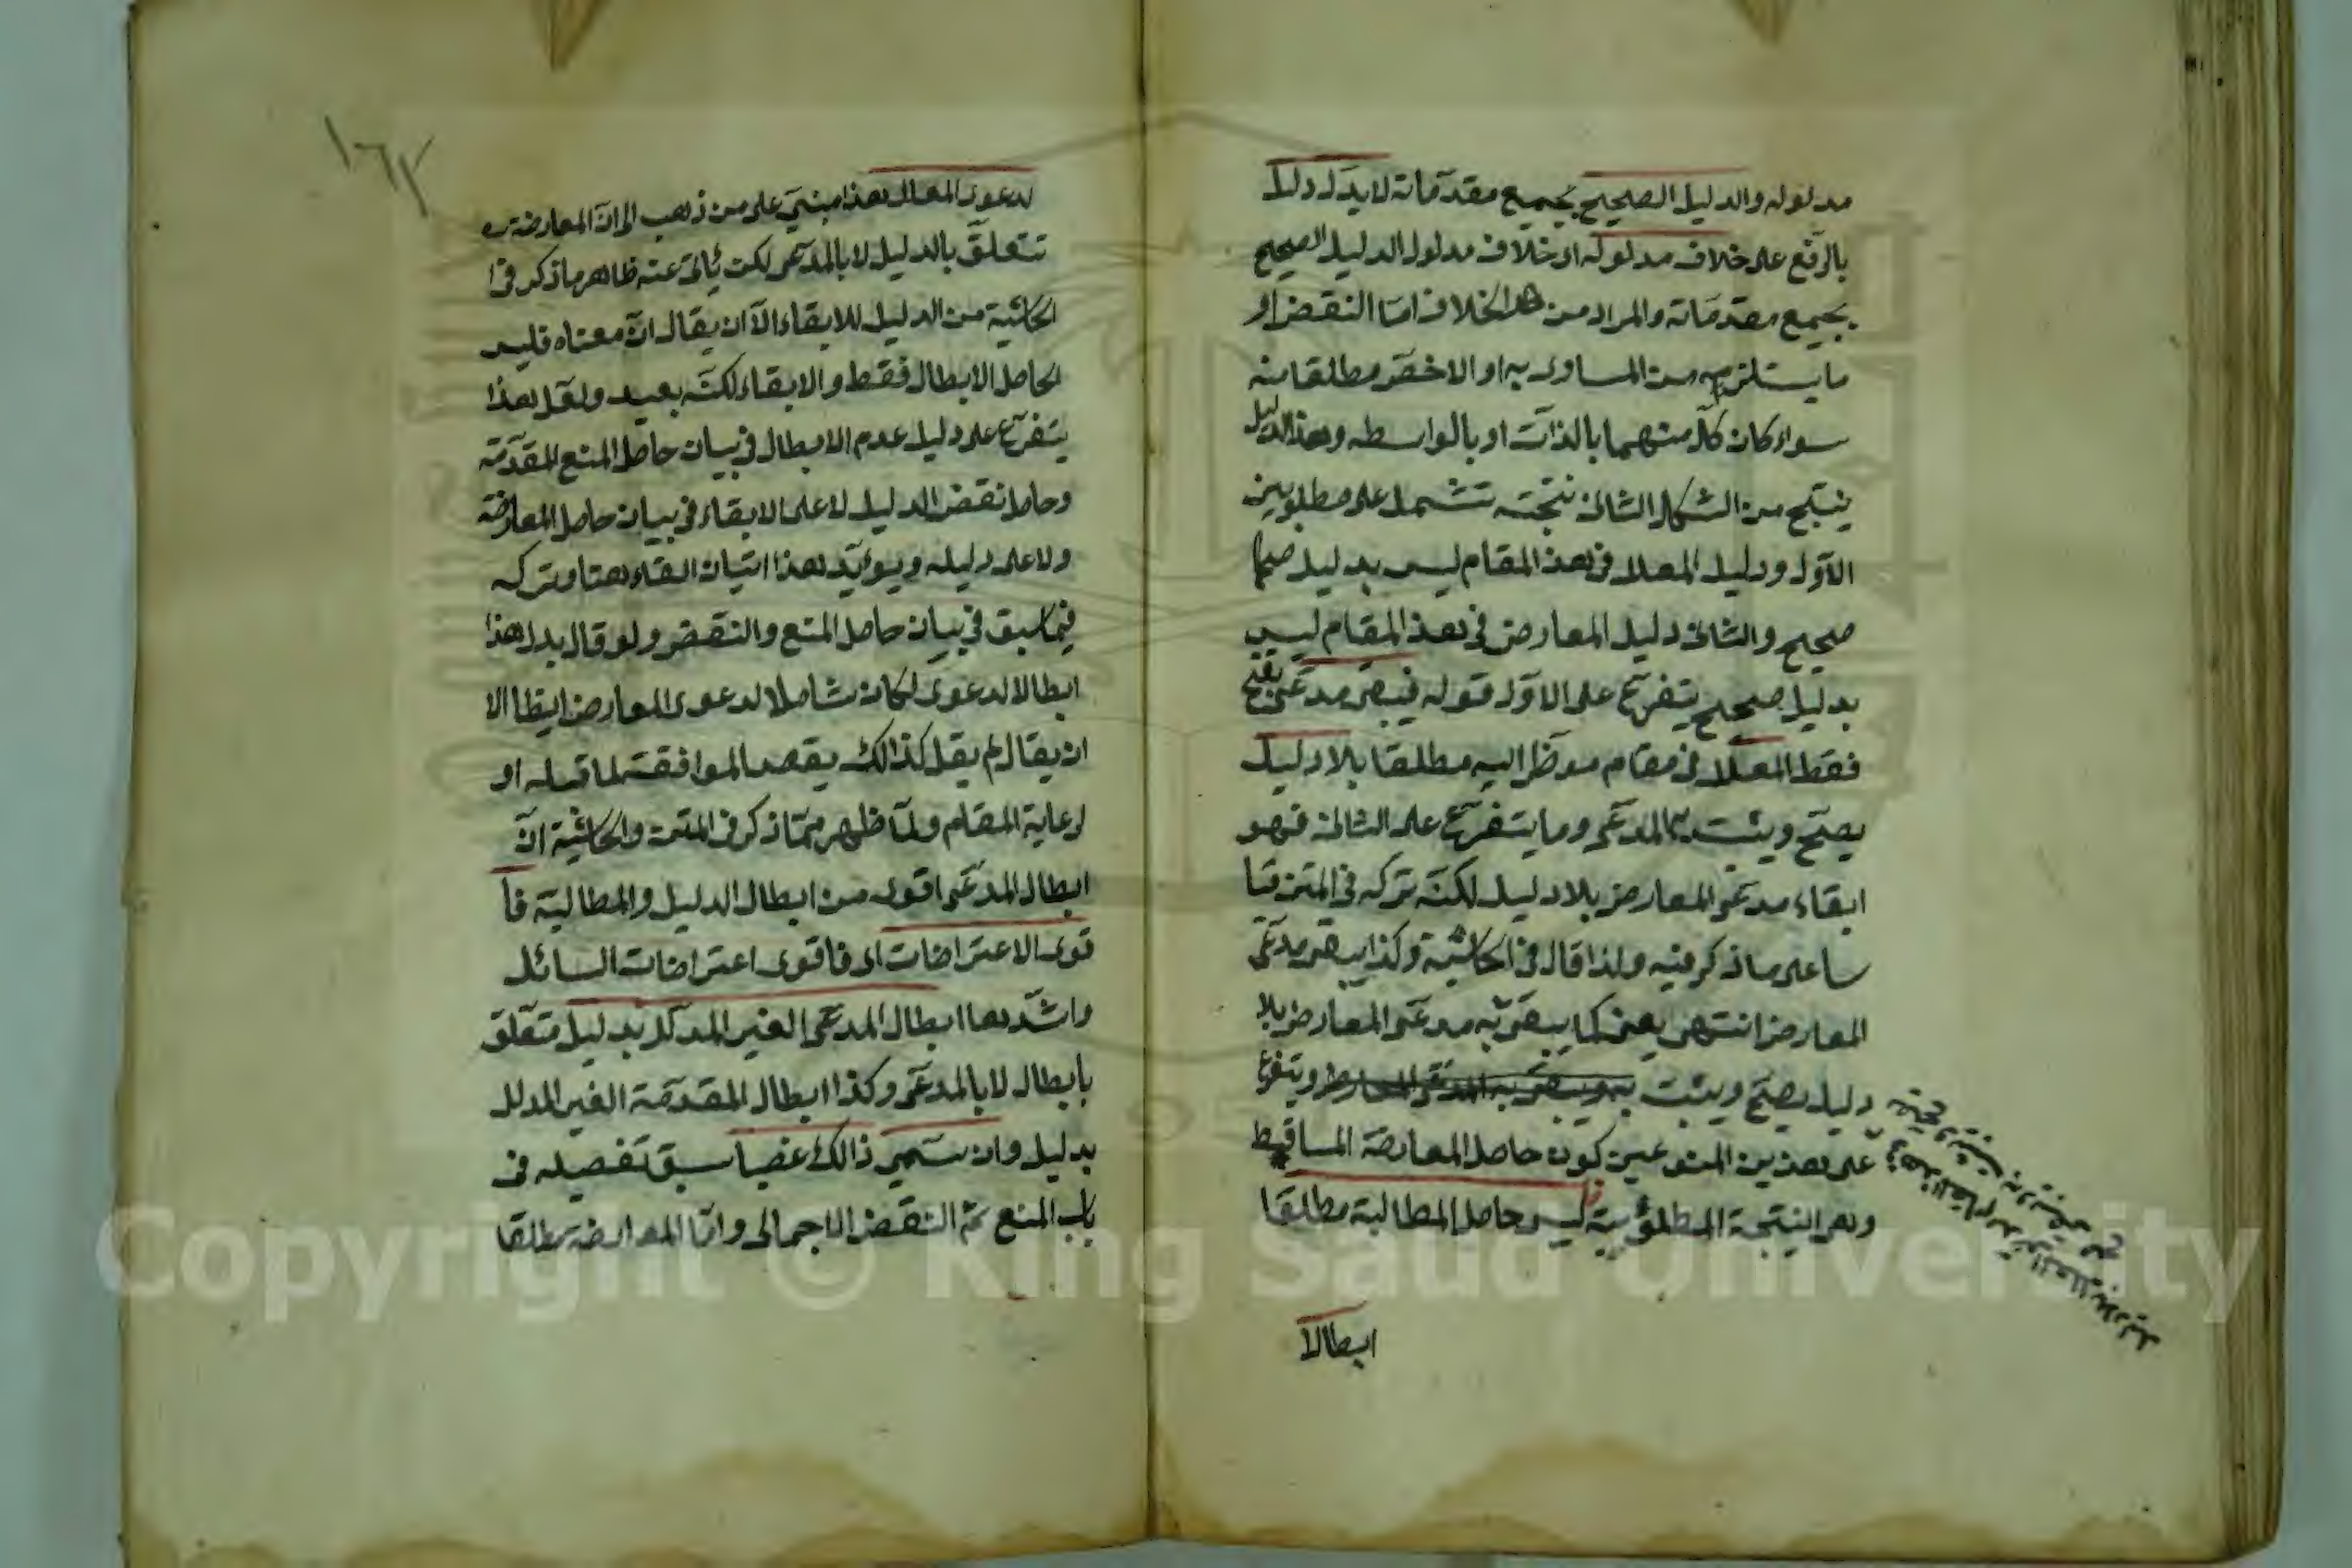 مدلوله والدليل الصحيح بجميع مقدماته لا يدل دليلا
بالرفع على خلاف مدلوله اى خلاف مدلول الدليل الصحيح
بجميع مقدماته والمراد من هذا الخلاف اما النقض او
ما يستلزمه من المساوى به او الاخص مطلقا منه
سواء كان كل منهما بالذات او بالواسطه وهذا الدليل
ينتج من الشكل الثانى نتجته تشمل على مطلوبين
الاول ودليل المعلل فى هذ المقام ليس بدليل
صحيح والثانى دليل المعارض فى هذ المقام ليس
بدليل صحيح يتفرع على الاول قوله فيبقى مدعى
فقط المعلل فى مقام اليه مطلقا بلا دليل
يصح ويثبت به المدعى وما يتفرع على الثانى فهو
ابقاء مدعى المعارض بلا دليل لكنه تركه فى المتن قيا
سا على ما ذكر فيه ولذا قال فى الحاشية وكذا يبقى مدعى
المعارض انتهى يعنى كما يبقى به مدعى المعارض بلا
دليل يصح ويثبت به ويتفرع
على هذين المنوعين كون حاصل المعارضة المساقط
وهى النتيجة المطلوبية ليس حاصل المطالبة مطلقا
ابطالا
١٦٢
لدعوى المعلل هذا مبنى على من ذهب الى ان المعارضة
تتعلق بالدليل لا بالمدعى لكن يأبى عنه ظاهر ما ذكر فى
الحاشية من الدليل للابقاء الا ان يقال ان معناه فليس
الحاصل الابطال فقط والابقاء لكنه بعيد ولعل هذا
يتفرع على دليل عدم الابطال فى بيان حاصل المنع المقدمة
وحاصل نقض الدليل لا على الابقاء فى بيان حاصل المعارضة
ولا على دليله ويوأيد هذا اتيان الفاء هنا وتركه
فيما سبق فى بيان حاصل المنع والنقض ولو قال بدل هذا
ابطالا لدعوى لكان شاملا لدعوى المعارض ايظا الا
ان يقال لم يقل كذالك يقصد الموافقة لما قبله او
لرعاية المقام ولما ظهر مما ذكر فى المتن والحاشية ان
ابطال المدعى اقوى من ابطال الدليل والمطالبة فا
قوى الاعتراضات اى فاقوى اعتراضات السائل
واشدها ابطال المدعى الغير المدلل بدليل متعلق
بابطال لا بالمدعى وكذا ابطال المقدمة الغير المدلل
بدليل وان سمى ذالك غصبا سبق تفصيله فى
باب المنع ثم النقض الاجمالى واما المعارضة مطلقا